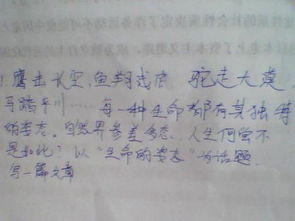 1.鹰击长空,鱼翔浅底 驼走大漠,
马踏平川……每一种生命都有其独特
的姿态。自然界参差多态,人生何尝不
是如此?以“生命的姿态”为话题
写一篇文章